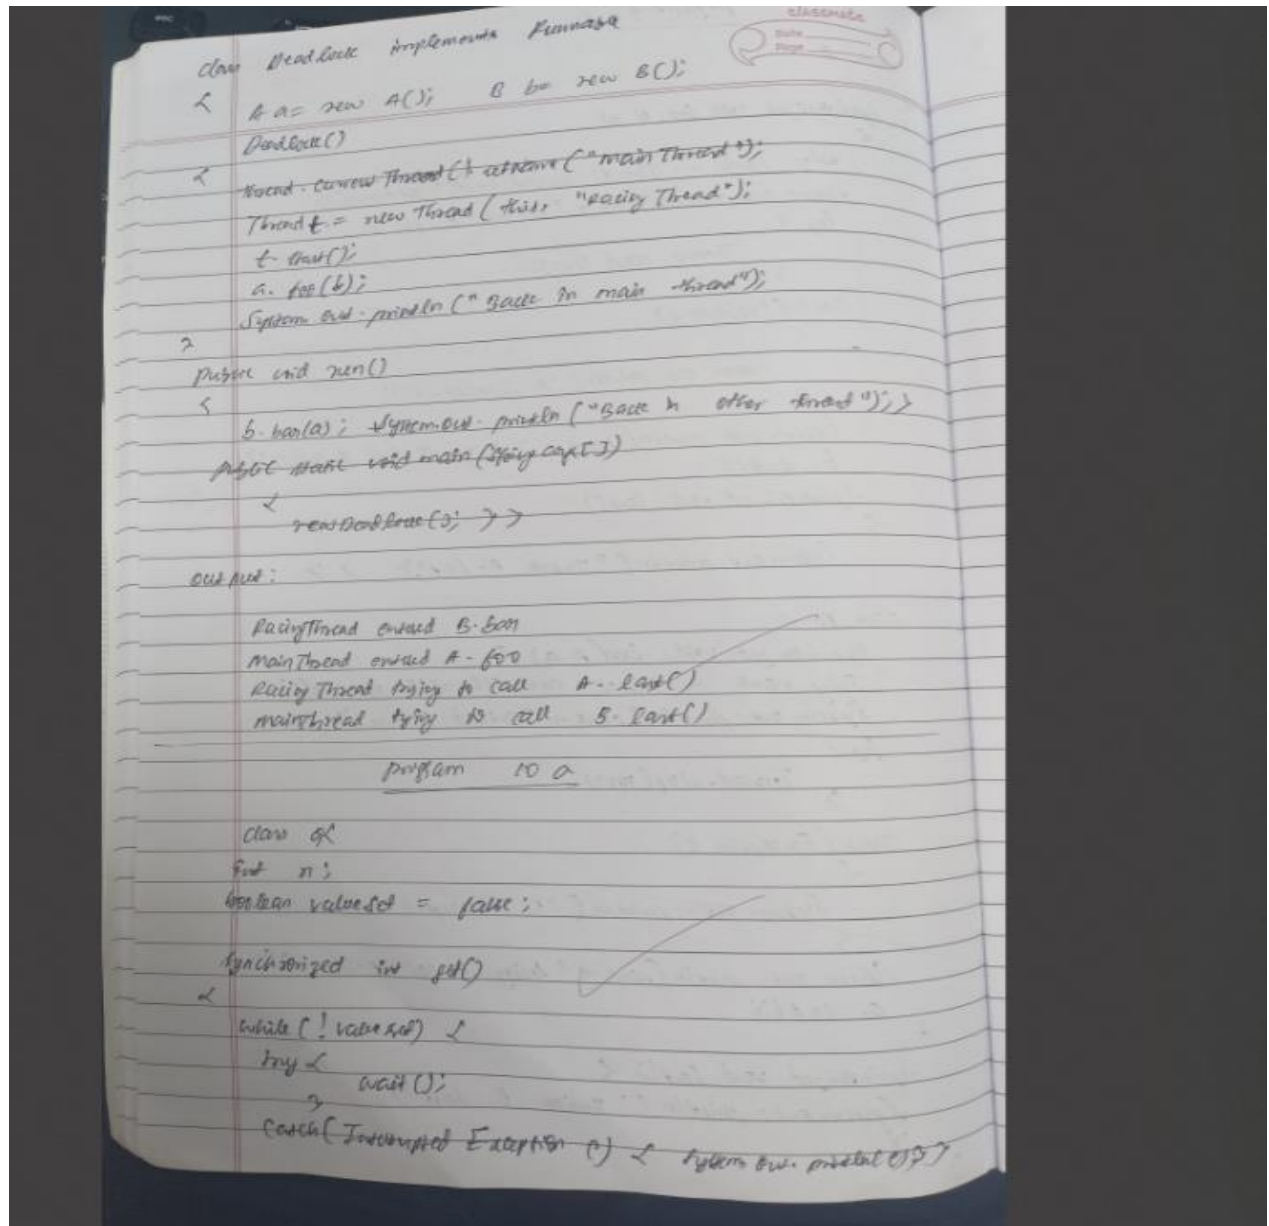 classmate
Date
Page
class Deadlock implements Runnable
{ A a = new A(); B b = new B();
Deadlock()
{ Thread.currentThread().setName("main Thread");
Thread t = new Thread(this, "Racing Thread");
t.start();
a.foo(b);
System.out.println("Back in main thread");
}
public void run()
{
b.bar(a); System.out.println("Back in other thread"); }
public static void main(String args[])
{
new Deadlock(); } }
output:
RacingThread entered B.bar
MainThread entered A.foo
Racing Thread trying to call A.last()
mainthread trying to call B.last()
program 10 a
class Q{
int n;
boolean valueSet = false;
synchronized int get()
{
while(!valueset) {
try {
wait();
}
catch(Interrupted Exception e) { System.out.println(e); } }